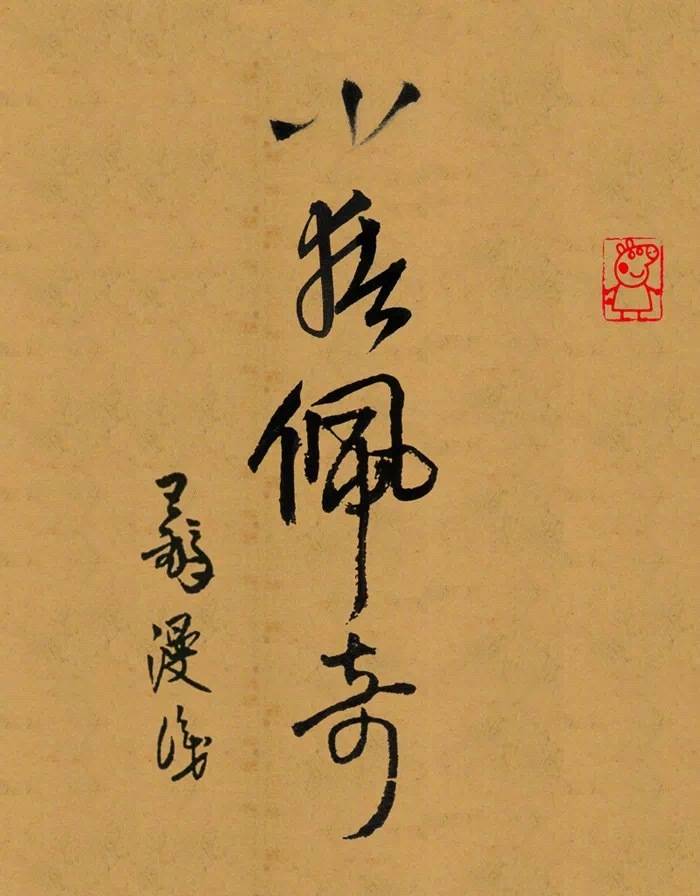 小猪佩奇
漫